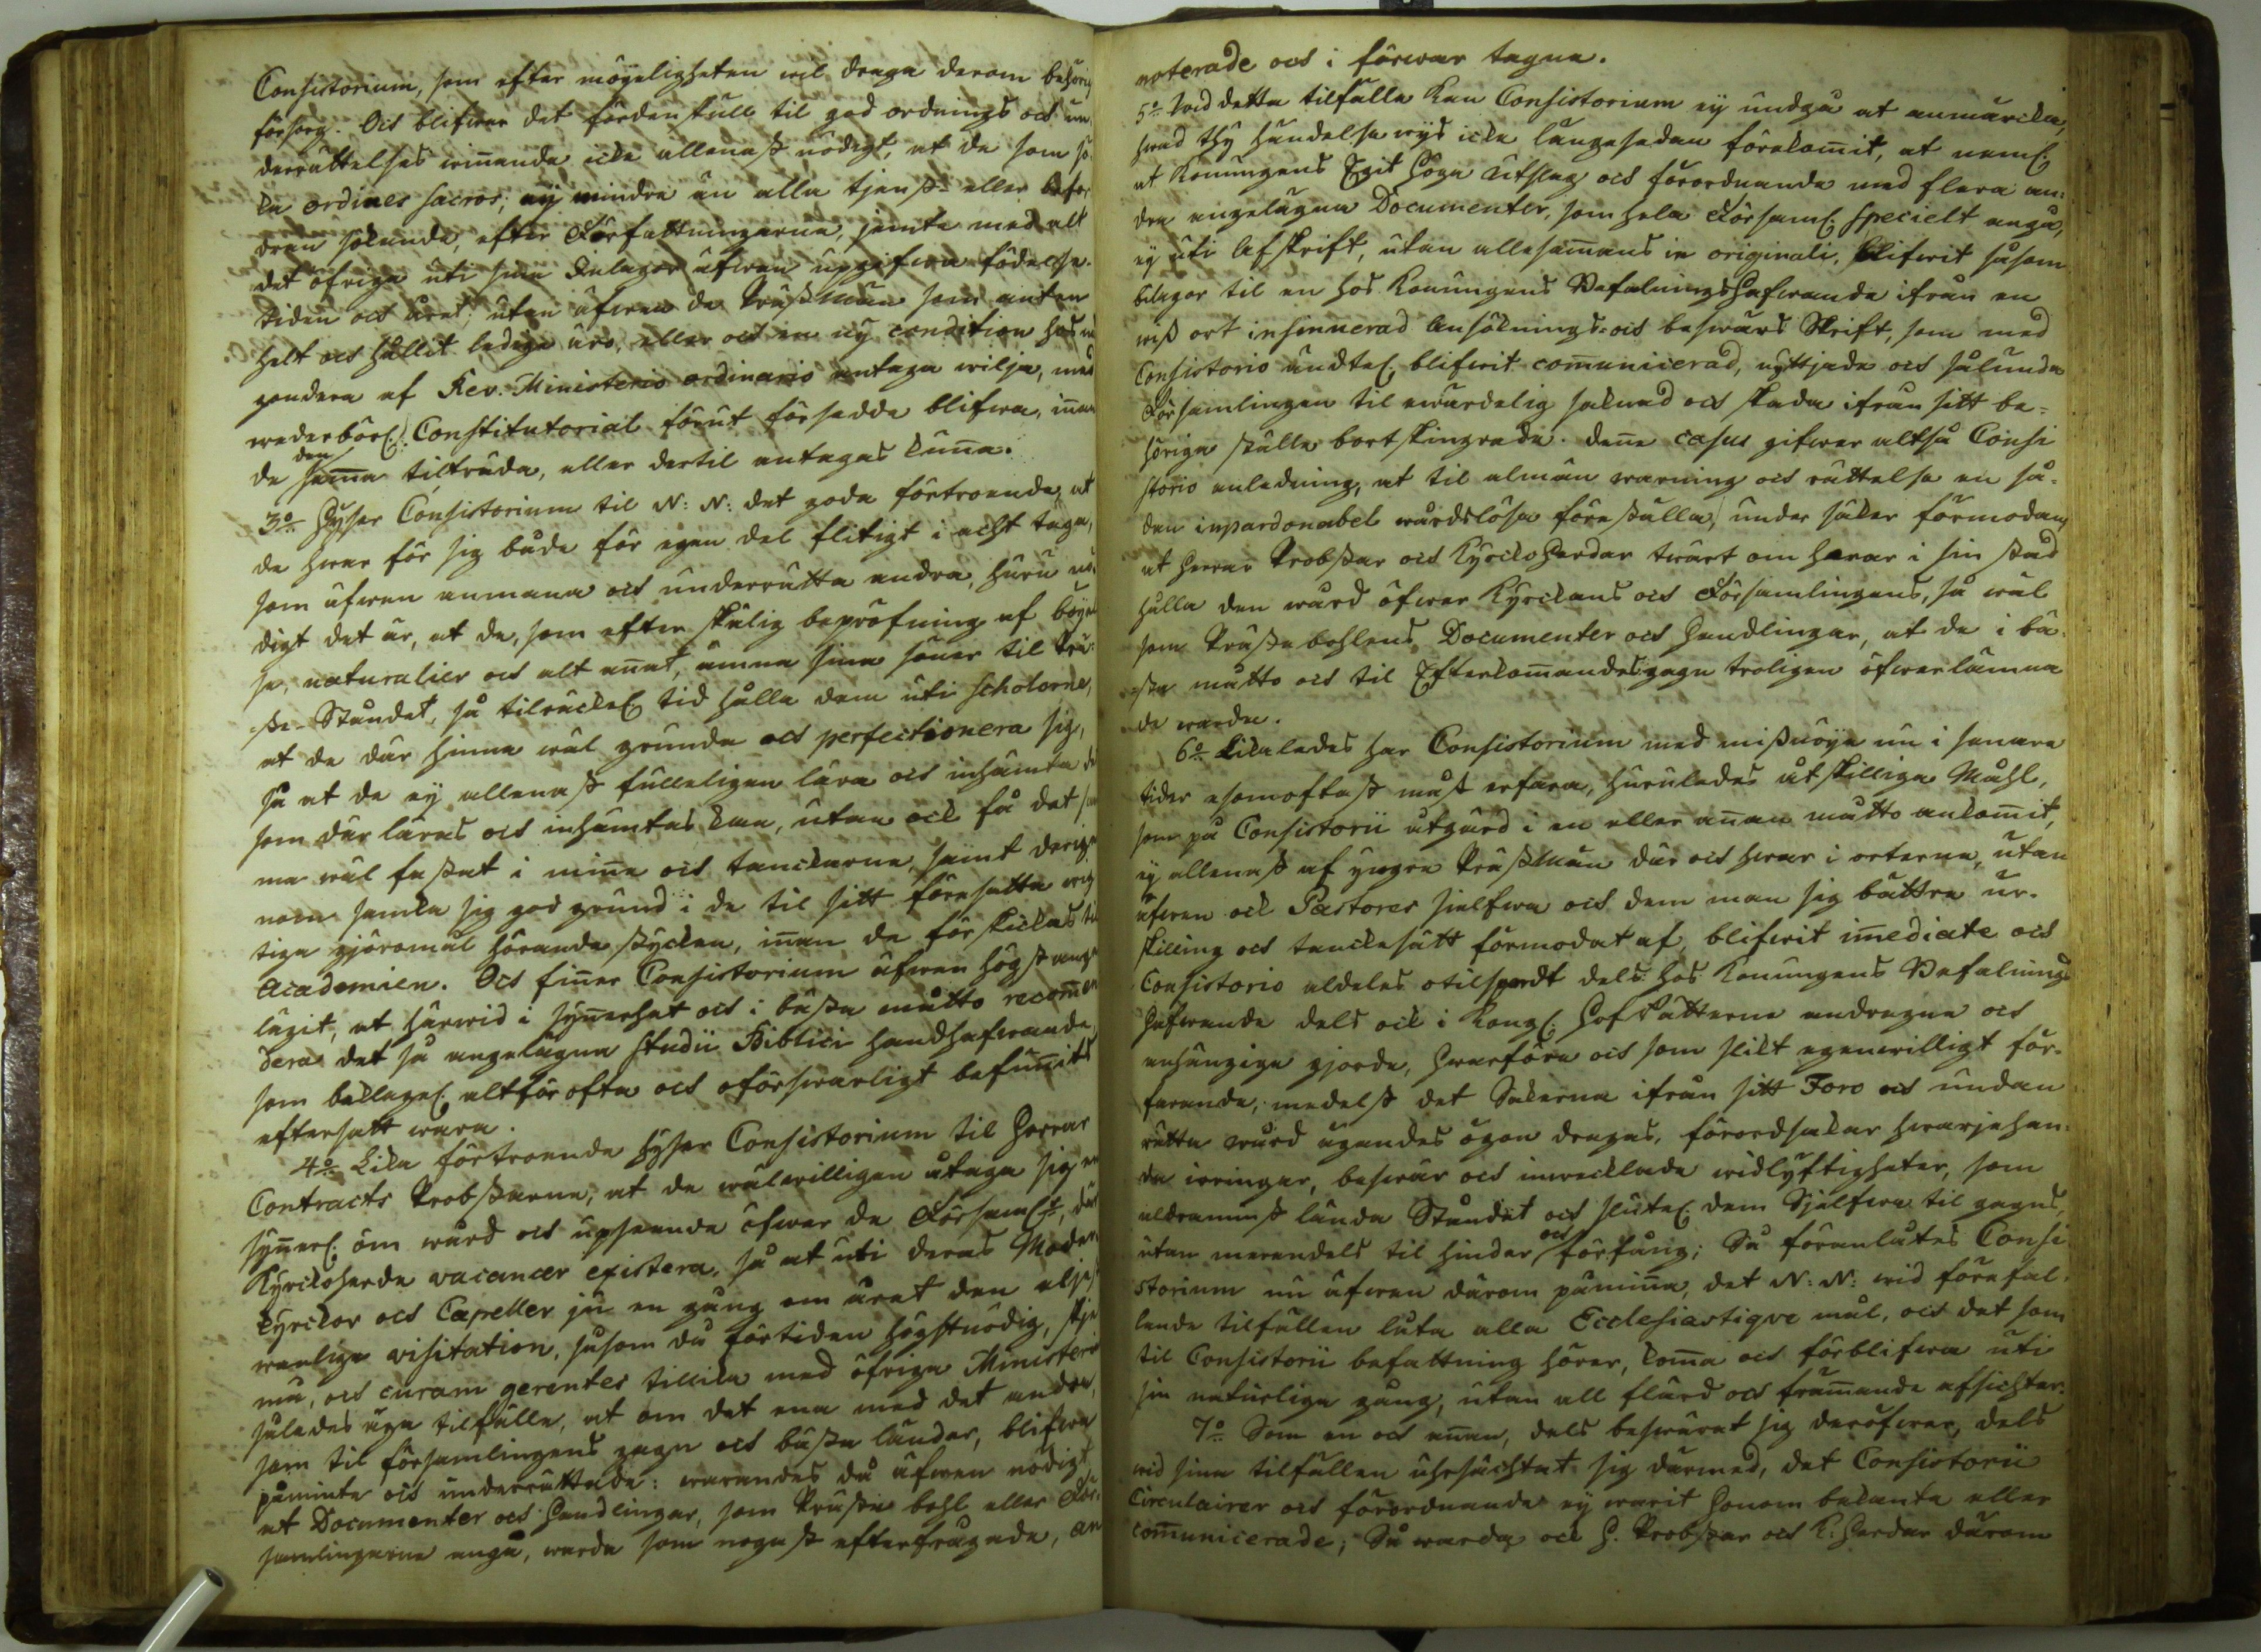 Consistorium, som efter möyeligheten wil draga derom behörig
försorg. Och blifwer det fördenskull til god ordnings och un-
derrättelses winnande icke allenast nödigt, at de som sö-
ka ordines sacros, ej mindre än alla tjenst- eller befor-
dran sökande, efter Författningarne, jämte med alt
det öfriga uti sina Inlagor äfwen upgifwa födelse-
tiden och året; utan äfwen de Prästmän som anten
helt och hållit lediga äro, eller och en ny condition hos nå
gondera af Rev. Ministerio ordinario antaga wilja, med
wederbörl. Constitutorial förut försedde blifwa, innan
de den samma tilträda, eller dertil antagas kunna.
3o Hyser Consistorium til N: N: det goda förtroende, at
de hwar för sig både för egen del flitigt i acht taga,
som äfwen anmana och underrätta andra, huru nö-
digt det är, at de, som efter skälig bepröfning af böyel-
se, naturalier och alt annat, ämna sina söner til Prä-
ste-Ståndet, så tilräckel. tid hålla dem uti Scholorne,
at de där hinna wäl grunda och perfectionera sig,
så at de ej allenast fulleligen lära och inhämta det
som där läras och inhämtas kan, utan ock få det sam
ma wäl fästat i minne och tanckarne, samt derige
nom samla sig god grund i de til sitt föresatta wig
tiga giöromål hörande stycken, innan de förskickas til
Academien. Och finner Consistorium äfwen högst ange
lägit, at härwid i synnerhet och i bästa måtto recommen
dera det så angelägna Studii Biblici handhafwande,
som beklagel. altför ofta och oförswarligt befunnits
eftersatt wara.
4o Lika förtroende hyser Consistorium til Herrar
Contracts Probstarne, at de wälwilligen åtaga sig en
synnerl. öm wård och upseende öfwer de Församl:r, där
Kyrckoherde vacancer existera, så at uti deras Moder
kyrckor och Capeller ju en gång om året den alje
wanliga visitation, såsom då förtiden högstnödig, skje
må, och curam gerentes tillika med öfriga Ministerio
således äga tilfälle, at om det ena med det andra,
som til församlingens gagn och bästa länder, blifwa
påminte och underrättade: warandes då äfwen nödigt
at Documenter och Handlingar, som Präste bohl eller För-
samlingarne angå, warda som nogast efterfrågade, an
noterade och i förwar tagne.
5o Wid detta tilfälle kan Consistorium ej undgå at anmärcka,
hwad thy händelsewijs icke längesedan förekommit, at neml.
at Konungens Egit Höga Utslag och förordnande med flera an-
dra angelägna Documenter, som hela Församl. specielt angå,
ej uti Afskrift, utan allesammans in originali, blifwit såsom
bilagor til en hos Konungens Befalningshafwande ifrån en
wiss ort insinuerad Ansöknings- och beswärs Skrift, som med
Consistorio ändtel. blifwit communicerad, nyttjade och sålunda
Församlingen til ewärdelig saknad och skada ifrån sitt be-
höriga ställe bortskingrade. Denne casus gifwer altså Consi
storio anledning, at til almän warning och rättelse en så-
dan inpardonabel wårdslösa föreställa, under säker förmodan,
at Herrar Probstar och Kyrckoherdar twärt om hwar i sin stad
hålla den wård öfwer Kyrckans och Församlingens, så wäl
som Prästebohlens Documenter och Handlingar, at de i bä-
sta måtto och til Efterkommandes gagn troligen öfwerlämna
de warda.
6o Likaledes har Consistorium med missnöye nu i senare
tider esomoftast mäst erfara, huruledes åtskilliga Måhl,
som på Consistorii utgärd i en eller annan måtto ankommit,
ej allenast af yngre Prästmän där och hwar i orterne, utan
äfwen ock Pastores sielfwa och dem man sig bättre ur-
skilling och tanckesätt förmodat af, blifwit immediate och
Consistorio aldeles otilspordt dels hos Konungens Befalnings
hafwande dels ock i Kongl. Hof Rätterne andragne och
anhängige giorde, hwarföre och som slikt egenwilligt för-
farande, medelst det Sakerna ifrån sitt Foro och undan
rätta wård ägandes ögon dragas, förordsakar hwarjehan-
da irringar, beswär och inwecklade widlyftigheter, som
aldraminst lända Ståndet och slutel. dem Sjelfwa til gagns,
utan merendels til hinder och förfång; Så föranlåtes Consi
storium nu äfwen därom påminna, det N: N: wid förefal-
lande tilfällen låta alla Ecclesiastique mål, och det som
til Consistorii befattning hörer, komma och förblifwa uti
sin naturliga gång, utan all flärd och främmande afsichter.
7o Som en och annan, dels beswärat sig deröfwer, dels
wid sina tilfällen uhrsächtat sig därmed, det Consistorii
Circulairer och förordnande ej warit honom bekante eller
communicerade; Så warda ock H. Probstar och K.Herdar därom